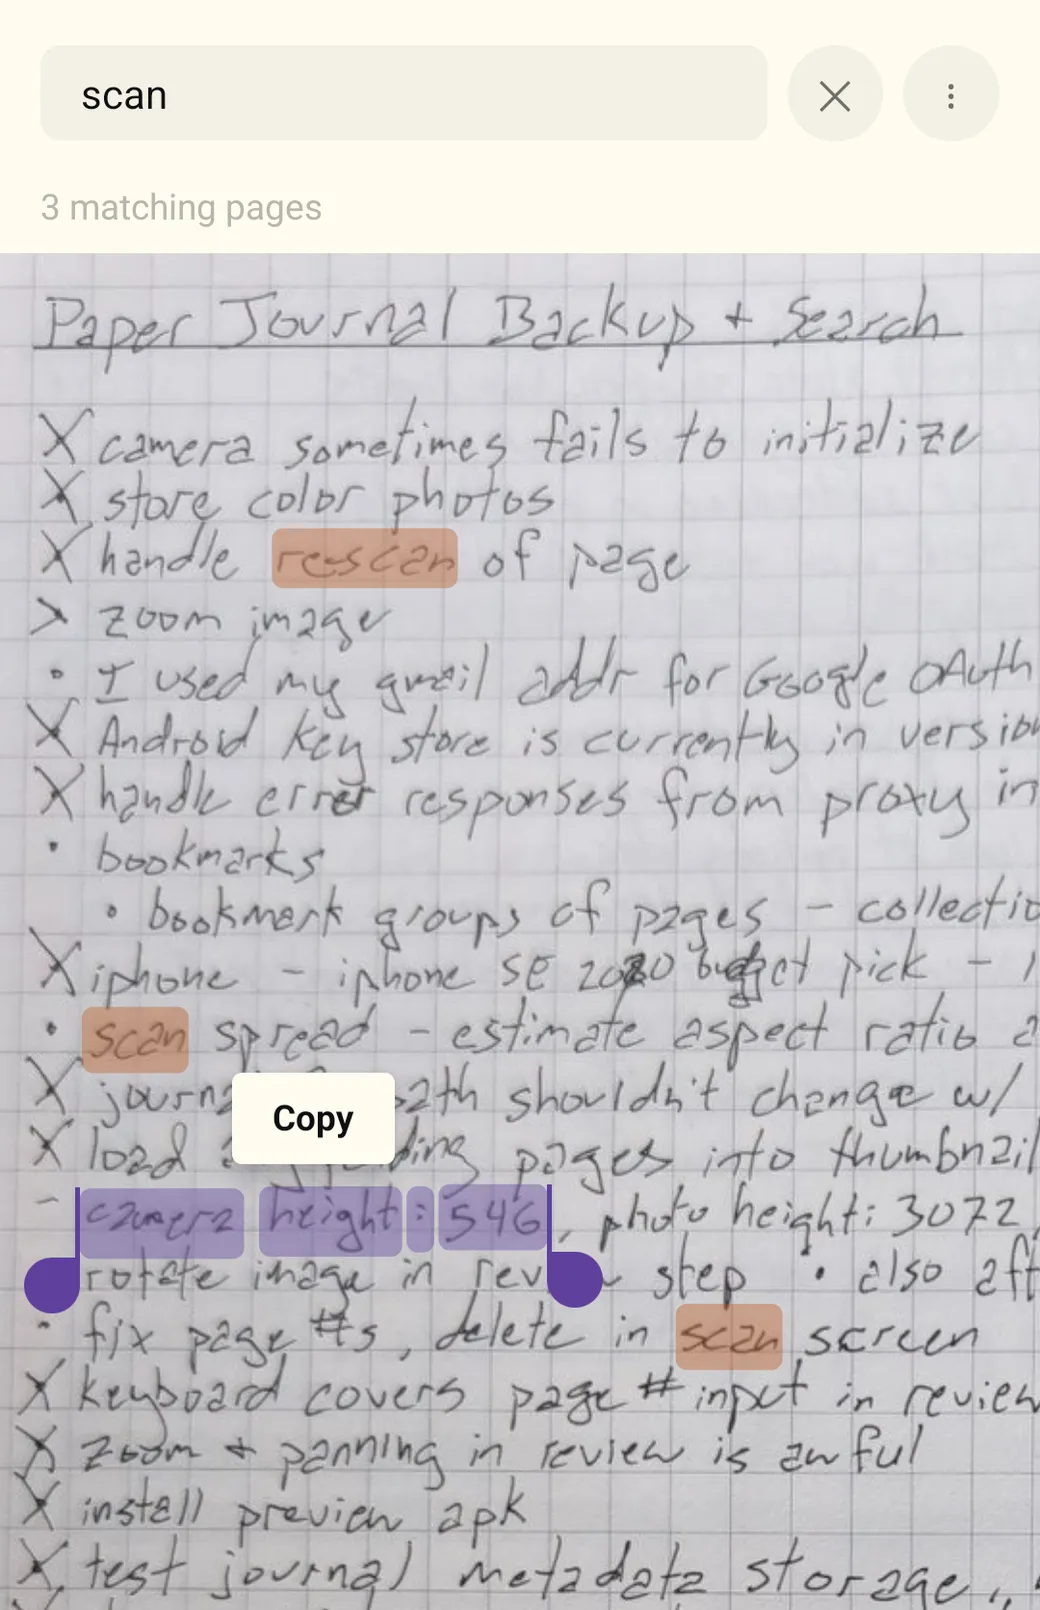 scan
3 matching pages
Paper Journal Backup + Search
X camera sometimes fails to initialize
X store color photos
X handle rescan of page
> zoom image
• I used my gmail addr for Google OAuth
X Android key store is currently in version
X handle error responses from proxy in
• bookmarks
• bookmark groups of pages - collectio
X iphone - iphone SE 2020 budget pick -
• scan spread - estimate aspect ratio a
Copy
X journa path shouldn't change w/
X load ding pages into thumbnail
- camera height: 546, photo height: 3072
rotate image in rev step • also aft
• fix page #s, delete in scan screen
X keyboard covers page # input in review
X zoom + panning in review is awful
X install preview apk
X test journal metadata storage,